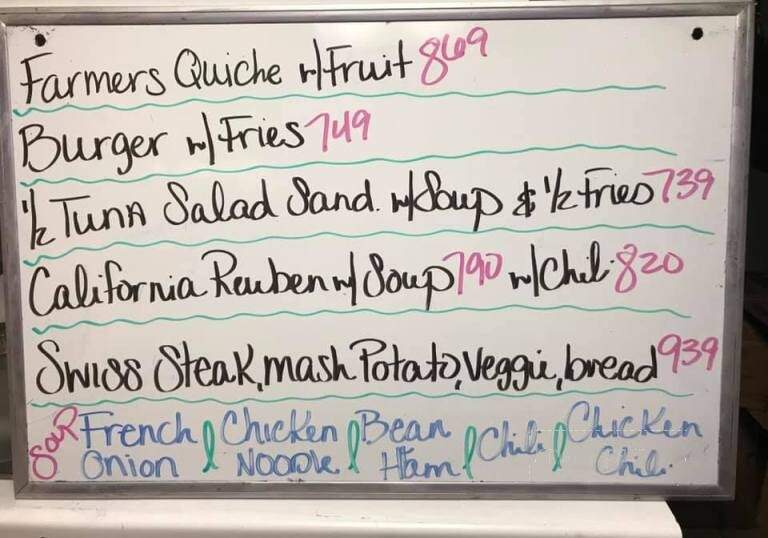 Farmers Quiche w/Fruit 869
Burger w/Fries 749
1/2 Tuna Salad Sand. w/Soup & 1/2 Fries 739
California Reuben w/Soup 790 w/Chili 820
Swiss Steak, mash Potato, Veggie, bread 939
Soup French Onion Chicken Noodle Bean Ham Chili Chicken Chili